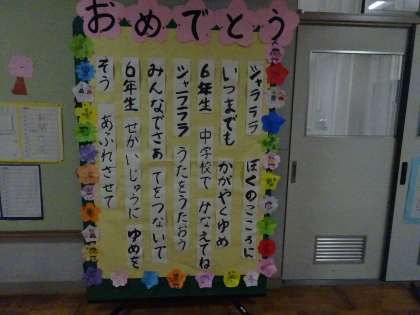 おめでとう
シャラララ ぼくのこころに
いつまでも かがやくゆめ
6年生 中学校で かなえてね
シャラララ うたをうたおう
みんなでさあ てをつないで
6年生 せかいじゅうに ゆめを
そう あふれさせて